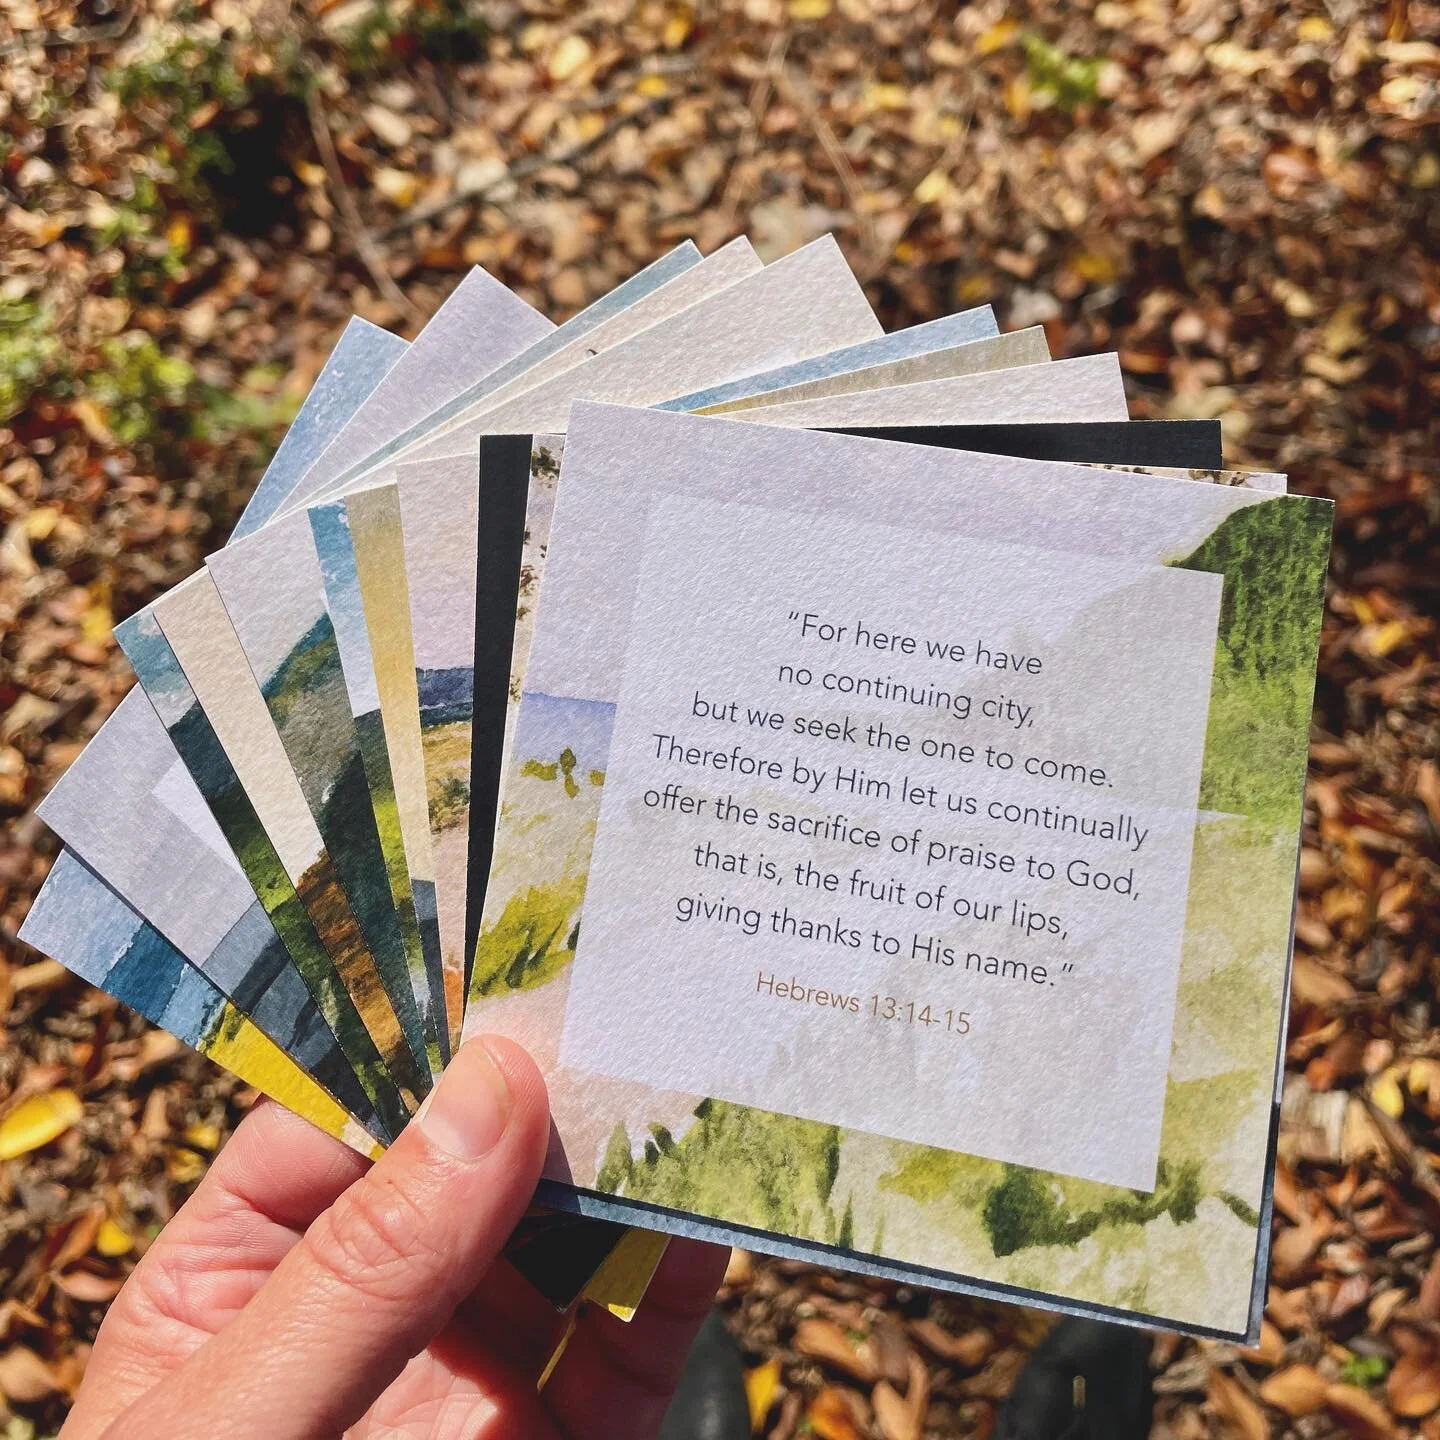 “For here we have
no continuing city,
but we seek the one to come.
Therefore by Him let us continually
offer the sacrifice of praise to God,
that is, the fruit of our lips,
giving thanks to His name.”
Hebrews 13:14-15